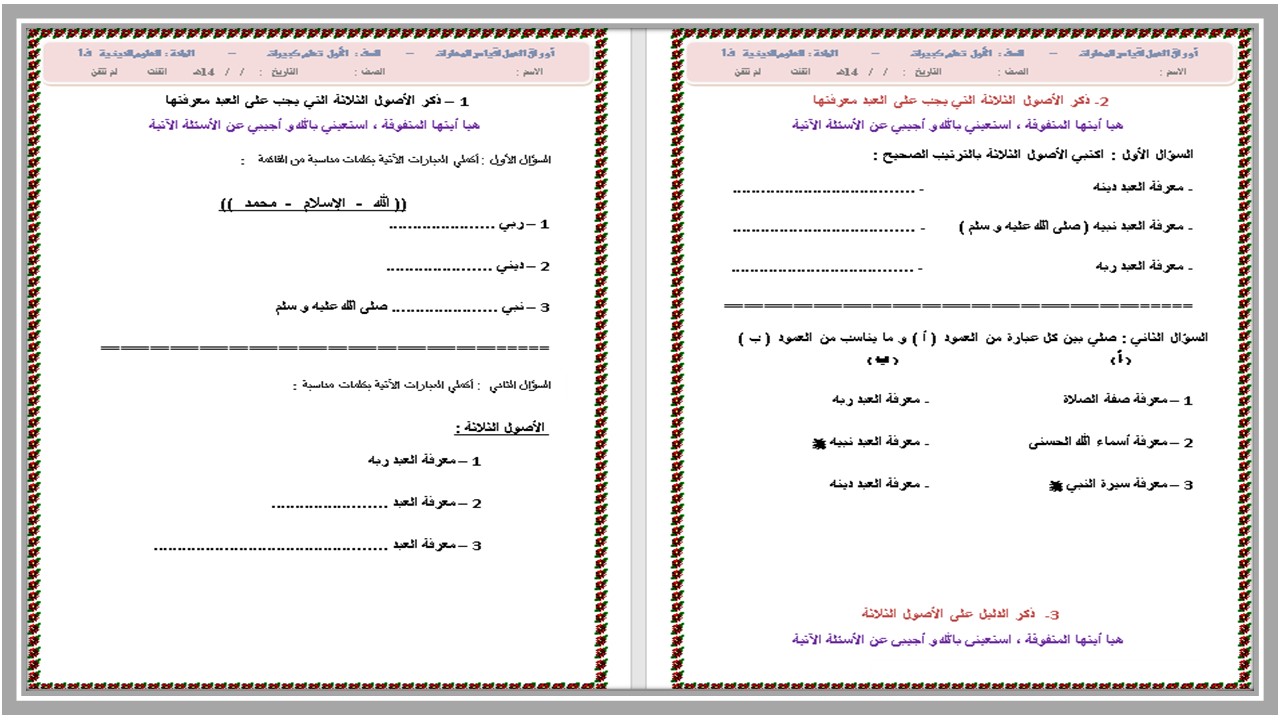 أوراق العمل لقياس المهارات – الصف : الأول تعليم كبيرات – المادة : العلوم الدينية ف1
الاسم : الصف : التاريخ : / / 14هـ اتقنت لم تتقن
2- ذكر الأصول الثلاثة التي يجب على العبد معرفتها
هيا أيتها المتفوقة ، استعيني بالله و أجيبي عن الأسئلة الآتية
السؤال الأول : اكتبي الأصول الثلاثة بالترتيب الصحيح :
- معرفة العبد دينه - ......................................
- معرفة العبد نبيه ( صلى الله عليه و سلم ) - ......................................
- معرفة العبد ربه - ......................................
================================================
السؤال الثاني : صلي بين كل عبارة من العمود ( أ ) و ما يناسب من العمود ( ب )
( أ ) ( ب )
1 – معرفة صفة الصلاة - معرفة العبد ربه
2 – معرفة أسماء الله الحسنى - معرفة العبد نبيه ﷺ
3 – معرفة سيرة النبي ﷺ - معرفة العبد دينه
3- ذكر الدليل على الأصول الثلاثة
هيا أيتها المتفوقة ، استعيني بالله و أجيبي عن الأسئلة الآتية
أوراق العمل لقياس المهارات – الصف : الأول تعليم كبيرات – المادة : العلوم الدينية ف1
الاسم : الصف : التاريخ : / / 14هـ اتقنت لم تتقن
1 – ذكر الأصول الثلاثة التي يجب على العبد معرفتها
هيا أيتها المتفوقة ، استعيني بالله و أجيبي عن الأسئلة الآتية
السؤال الأول : أكملي العبارات الآتية بكلمات مناسبة من القائمة :
(( الله - الإسلام - محمد ))
1 – ربي ......................
2 – ديني ......................
3 – نبي ...................... صلى الله عليه و سلم
==============================================
السؤال الثاني : أكملي العبارات الآتية بكلمات مناسبة :
الأصول الثلاثة :
1 – معرفة العبد ربه
2 – معرفة العبد ........................
3 – معرفة العبد ................................................